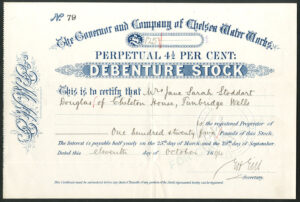 No. 79
The Governor and Company of Chelsea Water Works.
£125
PERPETUAL 4½ PER CENT:
DEBENTURE STOCK
This is to certify that Mrs Jane Sarah Stoddart
Douglas, of Chilston House, Tunbridge Wells
is the registered Proprietor of
One hundred & twenty five Pounds of this Stock.
The Interest is payable half yearly on the 25th day of March and the 29th day of September
Dated this eleventh day of October
Secretary.